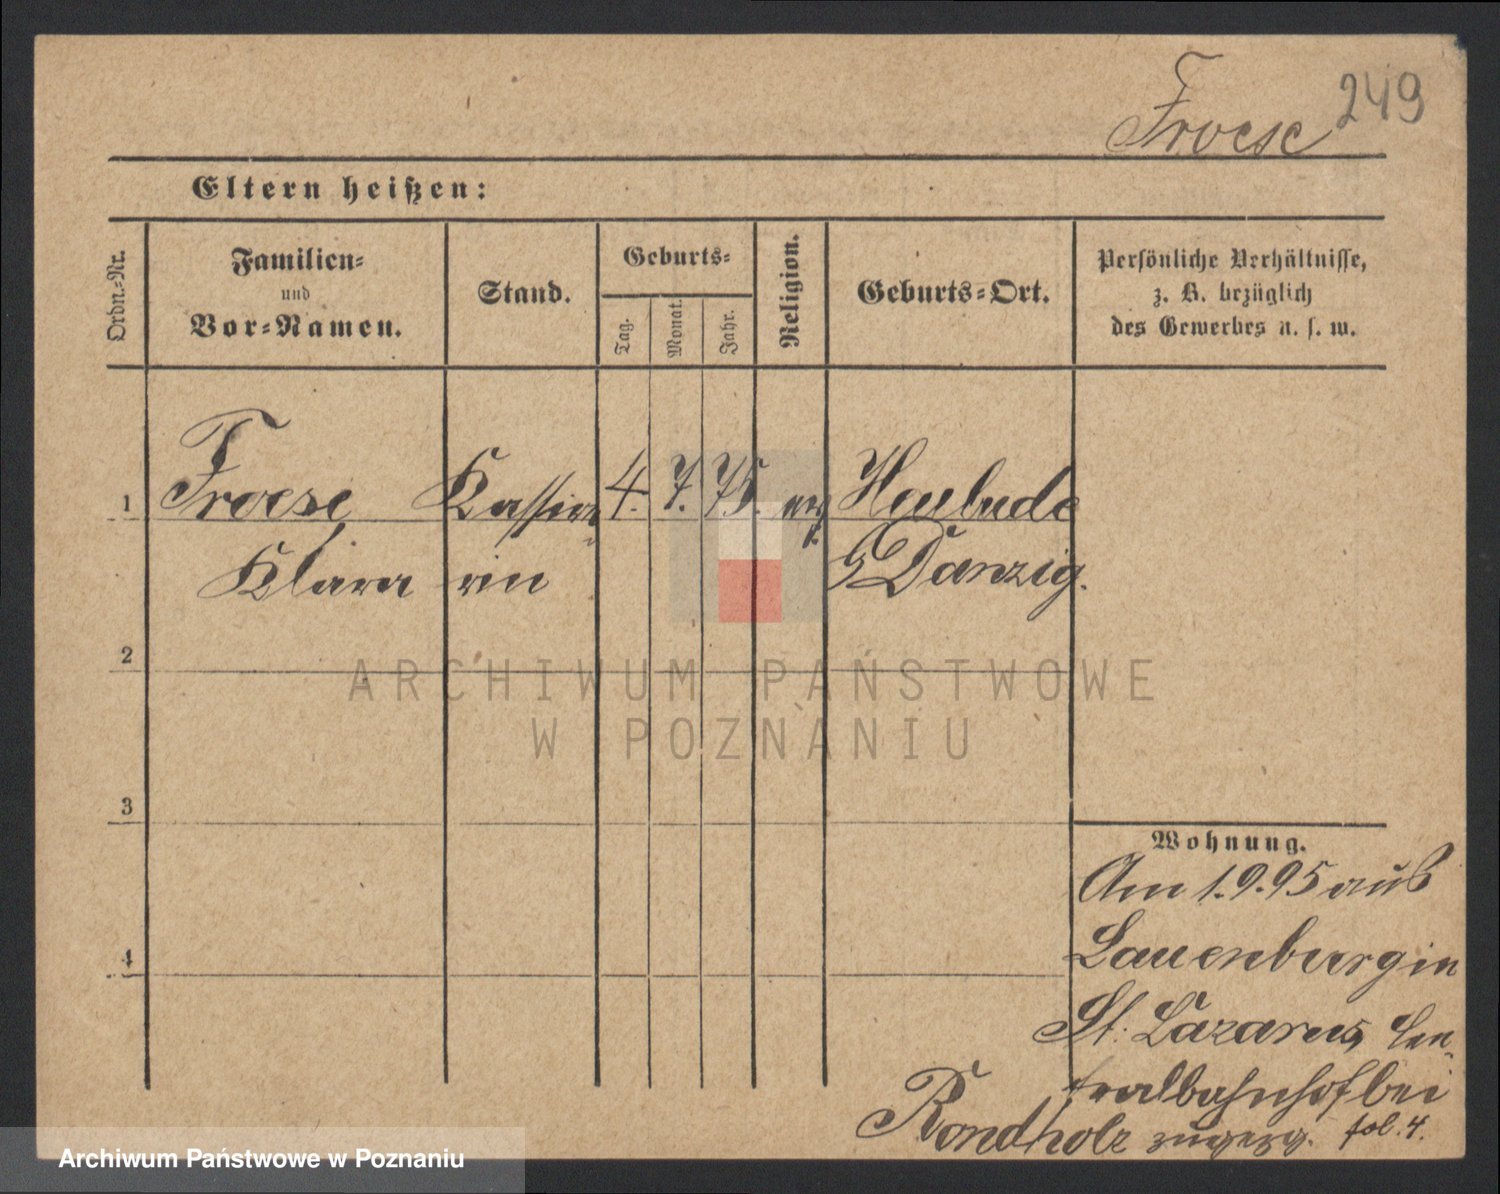 249
Froese
Eltern heißen:
Ordn.-Nr.
Familien-
und
Vor-Namen.
Stand.
Geburts-
Tag.
Monat.
Jahr.
Religion.
Geburts-Ort.
Persönliche Verhältnisse,
z. B. bezüglich
des Gewerbes u. s. w.
1 Froese, Kassie- 4. 7. 75. Heubude
Klara rin Danzig.
2
3
4
ARCHIWUM PAŃSTWOWE
W POZNANIU
Wohnung.
Am 1.9.95 aus
Lauenburg in
St. Lazarus, Cen-
tralbahnhof bei
Rondholz zugezg. fol. 4.
Archiwum Państwowe w Poznaniu